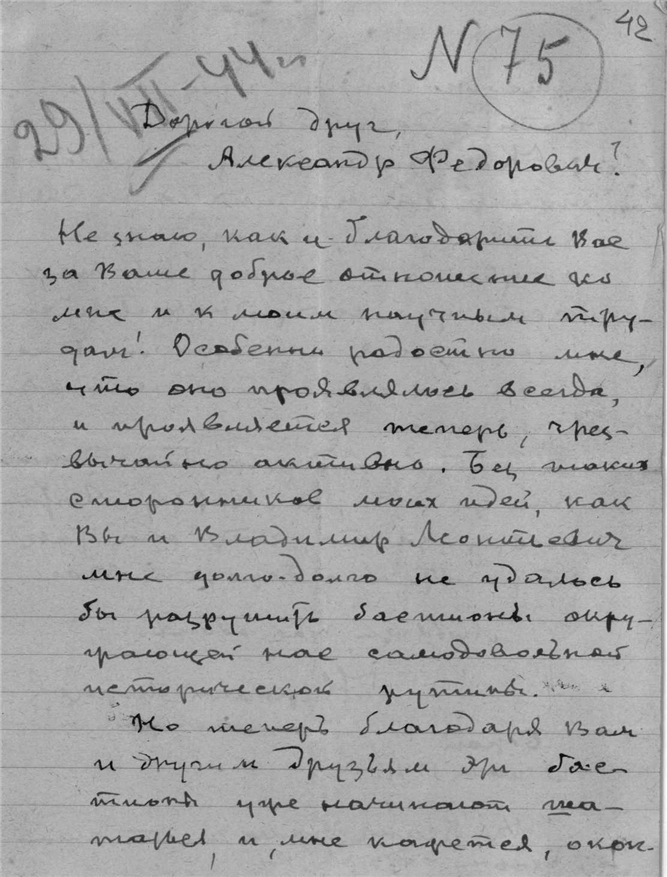 42
N 75
29/VIII-44 г.
Дорогой друг,
Александр Федорович!
Не знаю, как и благодарить Вас
за Ваше доброе отношение ко
мне и к моим научным тру-
дам! Особенно радостно мне,
что оно проявлялось всегда,
и проявляется теперь, чрез-
вычайно активно. Без таких
сторонников моих идей, как
Вы и Владимир Леонтьевич
мне долго-долго не удалось
бы разрушить бастионы окру-
жающей нас самодовольной
исторической рутины.
Но теперь благодаря Вам
и другим друзьям эти бас-
тионы уже начинают ша-
таться, и, мне кажется, окон-